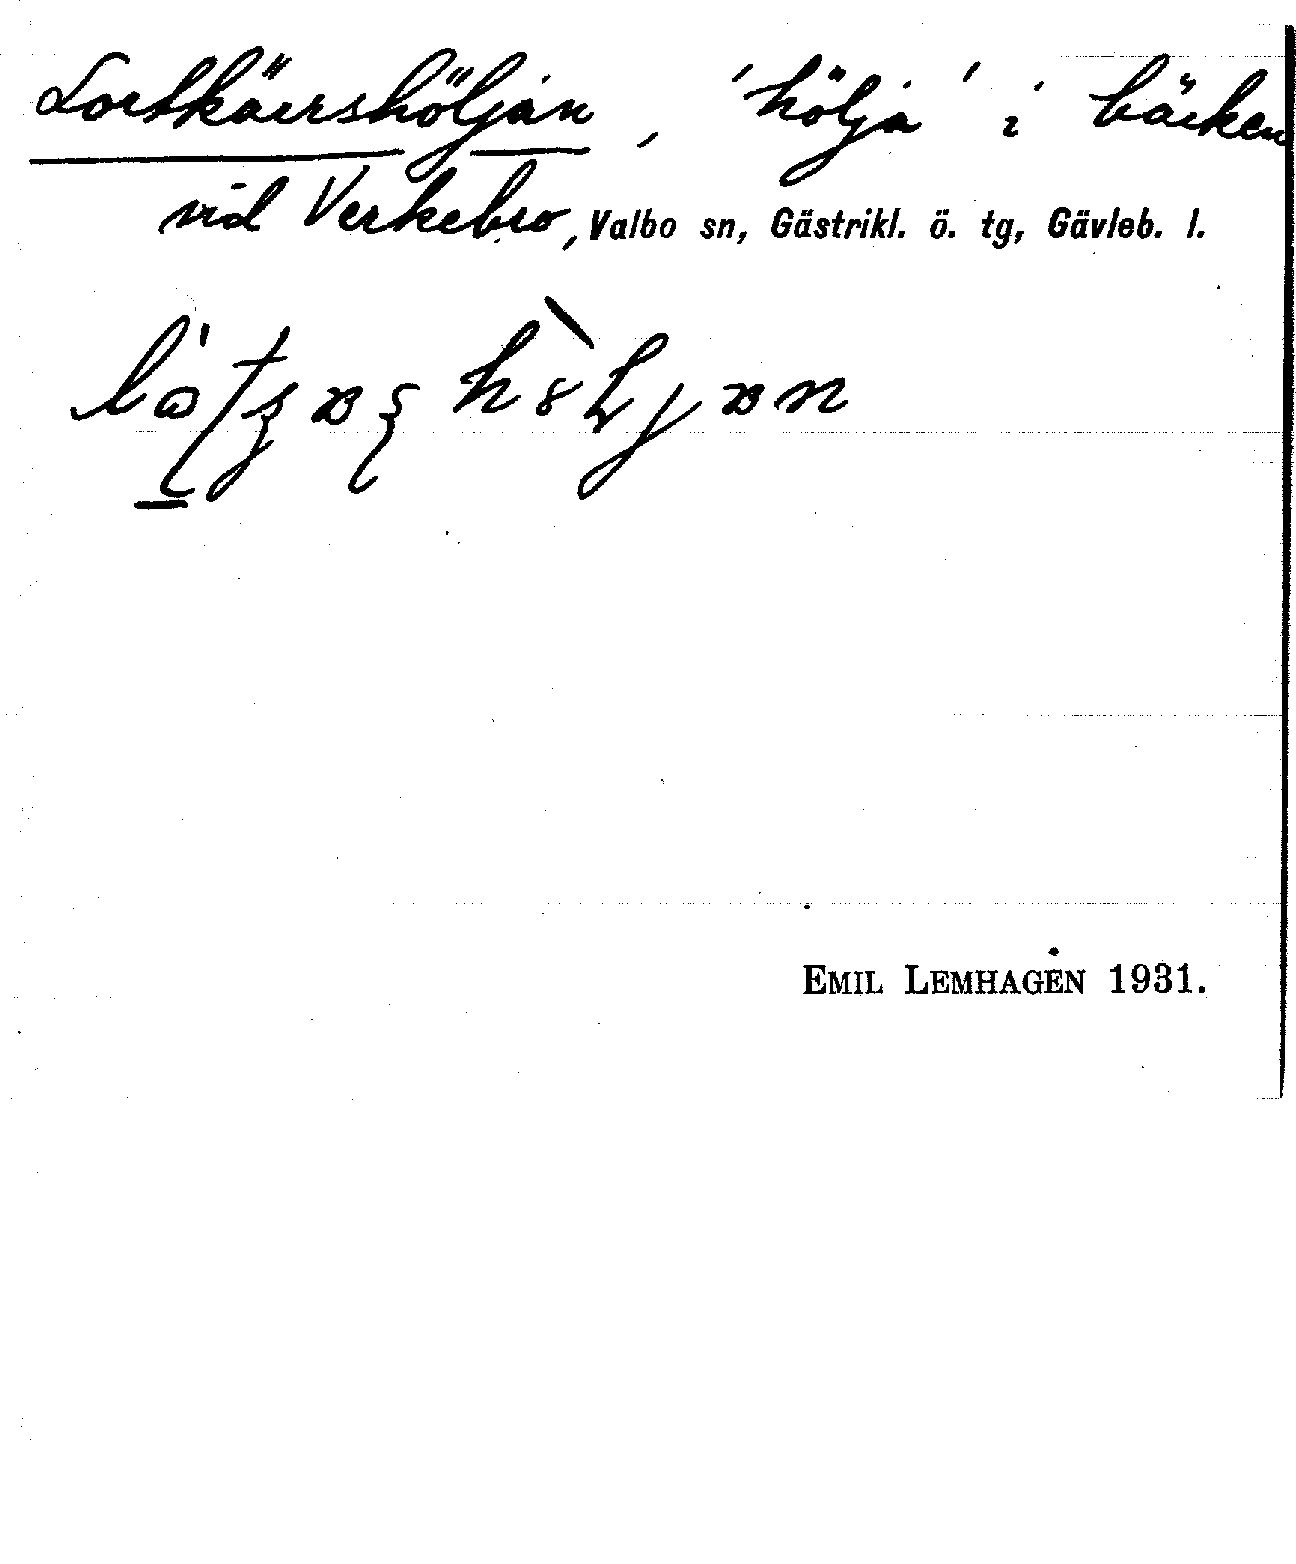 Lortkärrshöljan, 'hölja' i bäcken
vid Verkebro, Valbo sn, Gästrikl. ö. tg, Gävleb. l.
EMIL LEMHAGEN 1931.